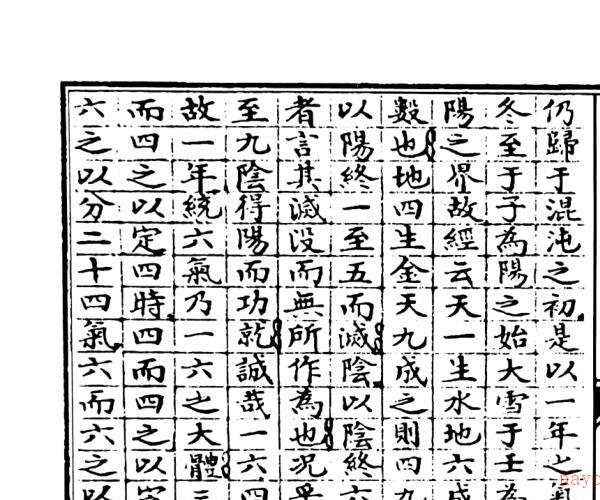 仍歸于混沌之初是以一年之氣
冬至于子為陽之始大雪于壬為
陽之界故經云天一生水地六成
數也地四生金天九成之則四九
以陽終一至五而滅陰以陰終六
者言其滅没而無所作為也况
至九陰得陽而功就誠哉一六四
故一年統六氣乃一六之大體三
而四之以定四時四而四之以定
六之以分二十四氣六而六之以
nayo